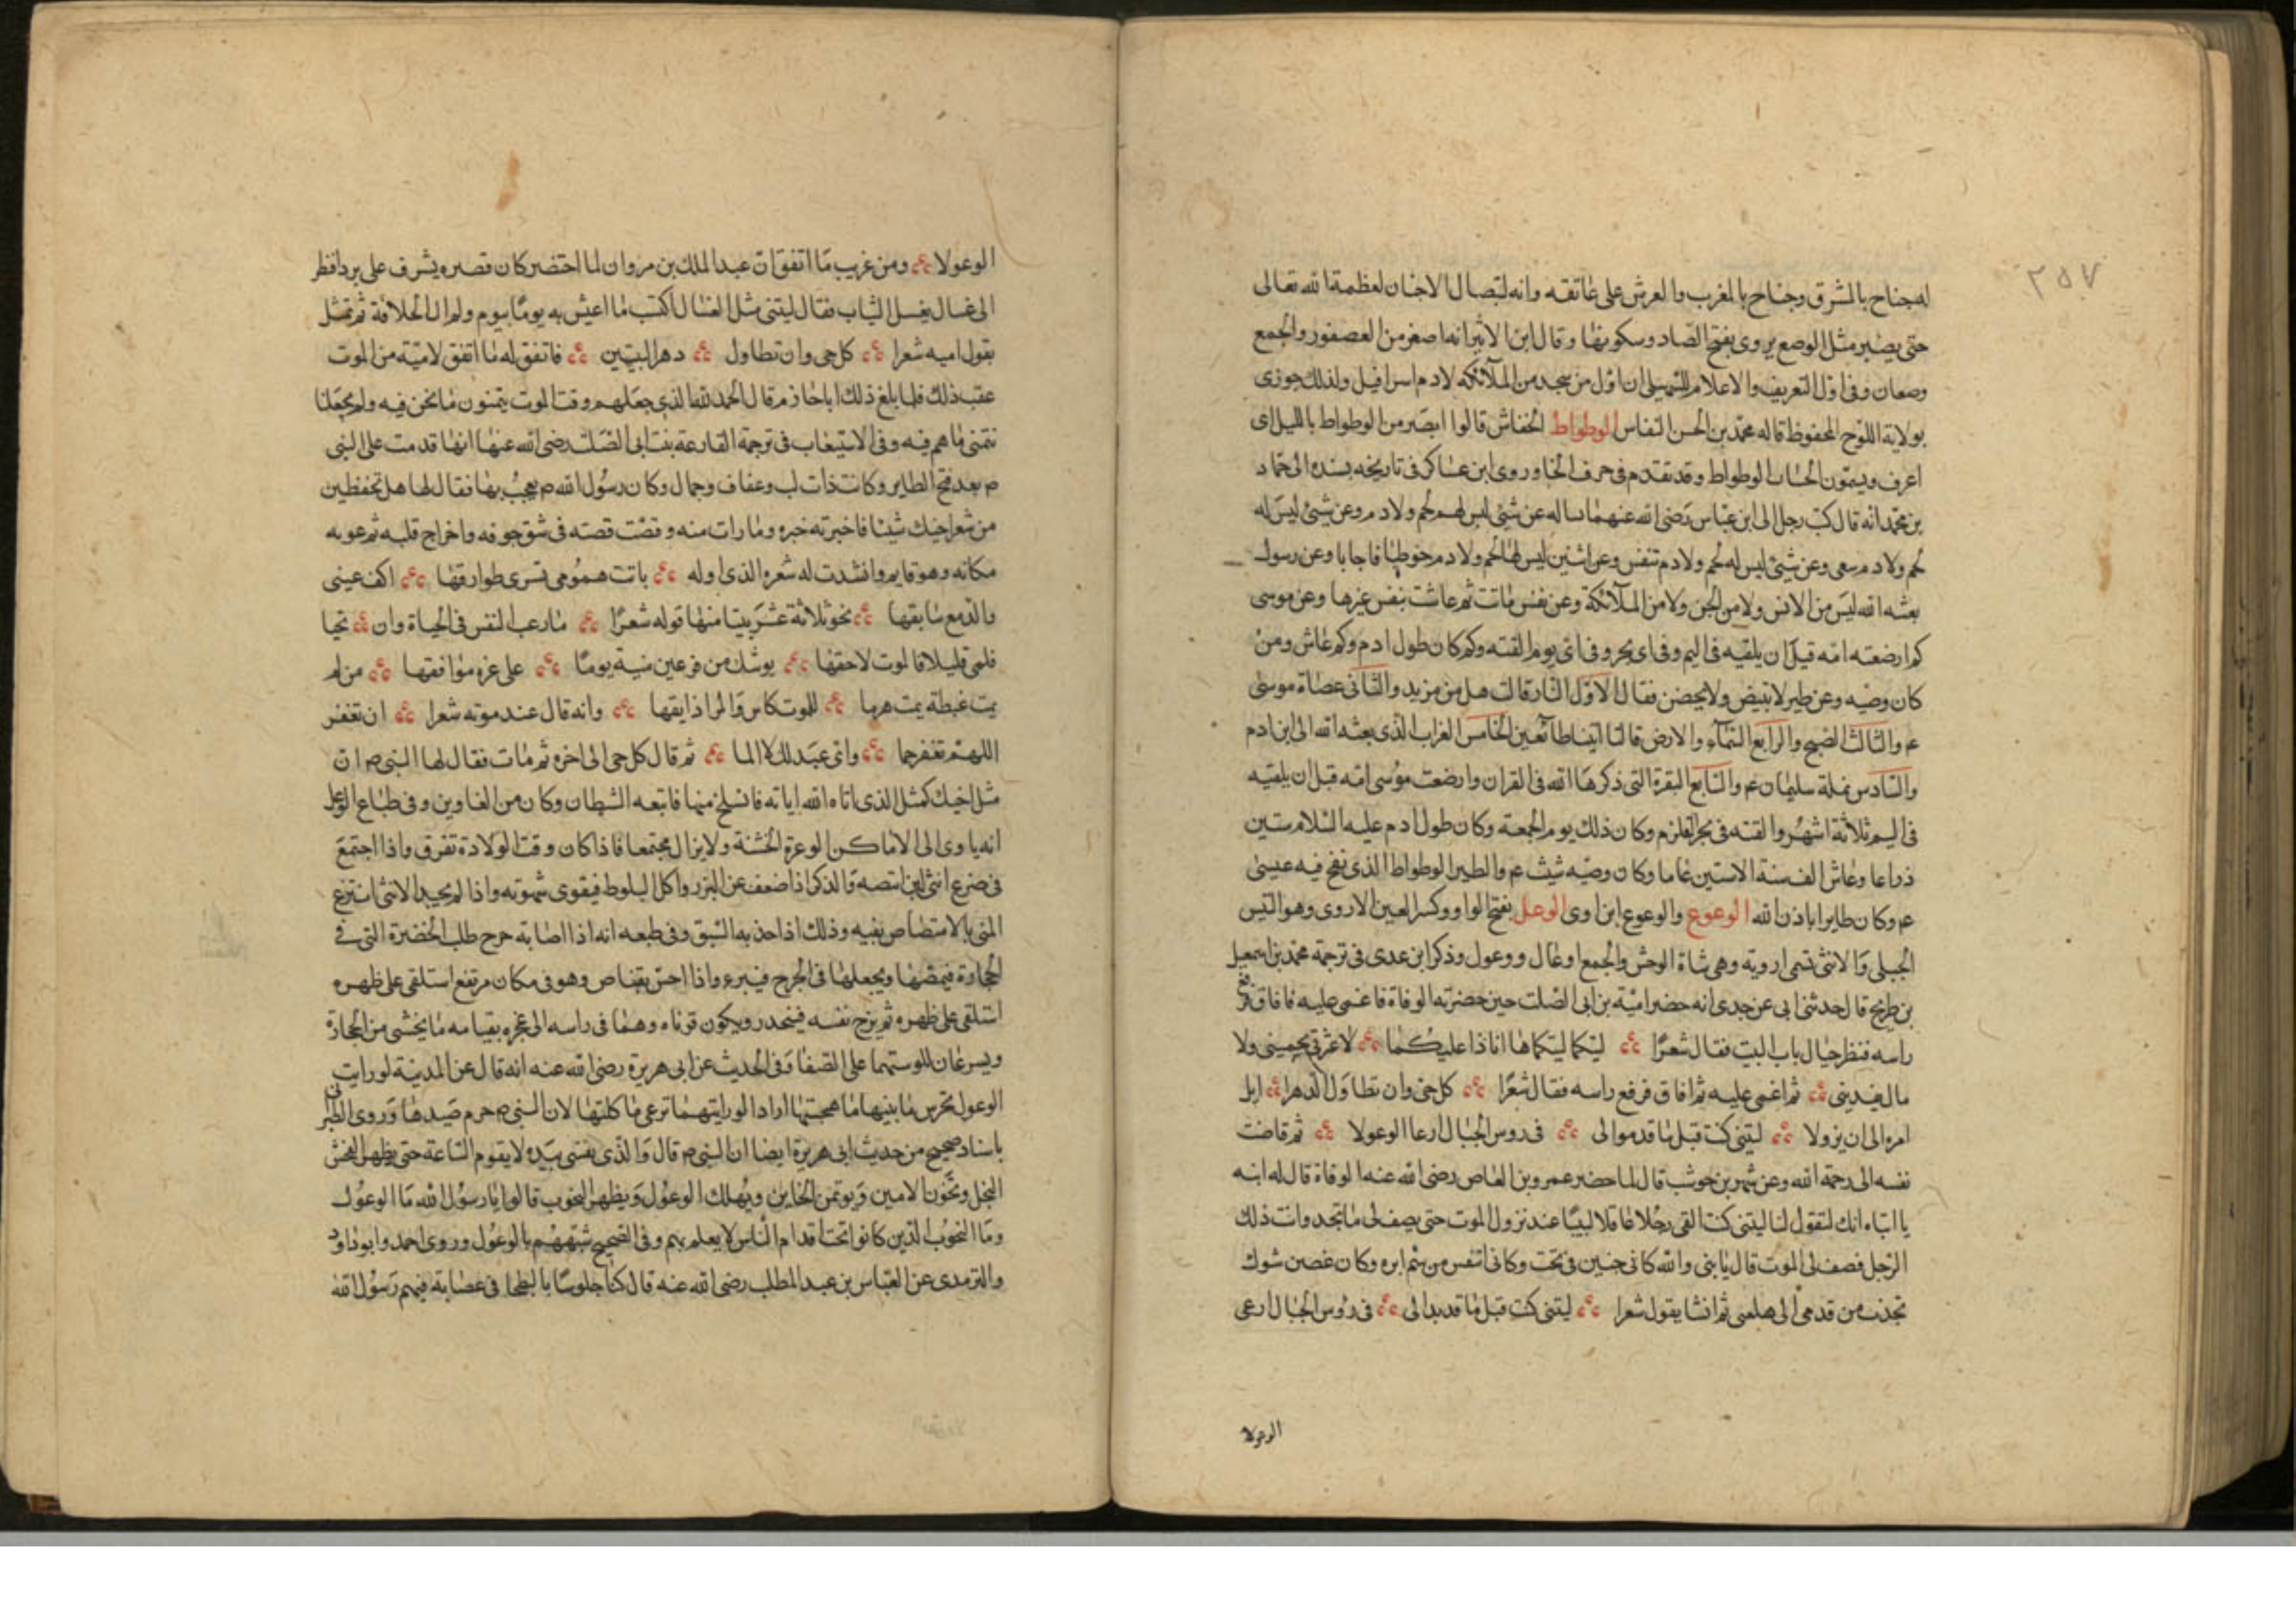 ٢٥٧
له جناح بالمشرق وجناح بالمغرب والعرش على عاتقه وانه ليتصال الاحنان لعظمة الله تعالى
حتى يصير مثل الوصع يروى بفتح الصاد وسكونها وقال ابن الاثير انه اصغر من العصفور والجمع
وصعان وفى اول التعريف والاعلام للسهيلى ان اول من سجد من الملآئكه لادم اسرافيل ولذلك جوزى
بولاية اللوح المحفوظ قاله محمد بن الحسن النقاس الوطواط الخفاش قالوا ابصر من الوطواط بالليل اى
اعرف ويسمون الوطواط وقد تقدم فى حرف الخا وروى ابن عساكر فى تاريخه بسنده الى حماد
بن محمد انه قال كتب رجل الى ابن عباس رضى الله عنهما ساله عن شئ ليس لهم لحم ولا دم وعن شئ ليس له
لحم ولا دم سعى وعن شئ ليس له لحم ولا دم تنفس وعن اثنين ليس لهما لحم ولا دم خوطبا فاجابا وعن رسول
بعثه الله ليس من الانس ولا من الجن ولا من الملآئكة وعن نفس ماتت ثم عاشت بنفس غيرها وعن موسى
كم ارضعته امه قبل ان يلقيه فى اليم وفى اى بحر وفى اى يوم القته وكم كان طول ادم وكم عاش ومن
كان وصيه وعن طير لا تبيض ولا يحضن فقال الاول النار قالت هل من مزيد والثانى عصاة موسى
عم والثالث الصبح والرابع السمآء والارض قالتا اتينا طآئعين الخامس الغراب الذى بعثه الله الى ابن ادم
والسادس نملة سليمان عم والسابع البقرة التى ذكرها الله فى القران وارضعت موسى امه قبل ان يلقيه
فى اليم ثلاثة اشهر والقته فى بحر القلزم وكان ذلك يوم الجمعة وكان طول ادم عليه السلام ستين
ذراعا وعاش الف سنة الا ستين عاما وكان وصيه شيث عم والطير الوطواط الذى نفخ فيه عيسى
عم وكان طايرا باذن الله الوعوع والوعوع ابن اوى الوعل بفتح الواو وكسر العين الاروى وهو التيس
الجبلى والانثى تسمى ارويه وهى شاة الوحش والجمع اوعال ووعول وذكر ابن عدى فى ترجمة محمد بن اسمعيل
بن طريح قال حدثنى ابى عن جدى انه حضر امية بن ابى الصلت حين حضرته الوفاة فاغمى عليه فافاق فرفع
راسه فنظر حيال باب البيت فقال شعرا لبيكما لبيكما ها انا ذا عليكما لا عزتى يحمينى ولا
مال يفدينى ثم اغمى عليه ثم افاق فرفع راسه فقال شعرا كل حى وان تطاول الدهرا ايل
امره الى ان يزولا ليتنى كنت قبل ما قد موالى فى روس الجبال ارعا الوعولا ثم قاضت
نفسه الى رحمة الله وعن شهر بن حوشب قال لما حضر عمرو بن العاص رضى الله عنه الوفاة قال له ابنه
يا ابتاه انك لتقول لنا ليتنى كنت القى رجلا عاقلا لبيبا عند نزول الموت حتى يصف لى ما تجد وانت ذلك
الرجل فصف لى الموت قال يا بنى والله كانى جنبين فى تحت وكانى اتنفس من سم ابره وكان غصين شوك
تجذب من قدمى الى هامى ثم انشا يقول شعرا ليتنى كنت قبل ما قد بدا لى فى رؤس الجبال ارعى
الوعولا
الوعولا ومن غريب ما اتفق ان عبد الملك بن مروان لما احتضر كان قصره يشرف على بردا فنظر
الى غسال يغسل الثياب فقال ليتنى مثل الغسال اكتب ما اعيش به يوما بيوم ولم ال الخلافة ثم تمثل
بقول اميه شعرا كل حى وان تطاول دهرا البيتين فاتفق له ما اتفق لامية من الموت
عقب ذلك فلما بلغ ذلك ابا حازم قال الحمد لله الذى جعلهم وقت الموت يتمنون ما نحن فيه ولم يجعلنا
نتمنى ما هم فيه وفى الاستيعاب فى ترجمة الفارعة بنت ابى الصلت رضى الله عنها انها قدمت على النبى
ص بعد فتح الطايز وكانت ذات لب وعفاف وجمال وكان رسول الله ص يعجب بها فقال لها هل تحفظين
من شعر اخيك شيئا فاخبرته خبره وما رات منه وقصت قصته فى شق جوفه واخراج قلبه ثم عوبه
مكانه وهو قايم وانشدت له شعره الذى اوله باتت همومى تسرى طوارقها اكف عينى
والدمع سابقها نحو ثلاثة عشر بيتا منها قوله شعرا ما رعب النفس فى الحياة وان تحيا
فلمى قليلا فالموت لاحقها يوشك من فر عين منية يوما على غره موافقها من لم
يمت غبطة يمت هرما للموت كاس والمرا ذايقها وانه قال عند موته شعرا ان تغفر
اللهم تغفر جما واى عبد لك لا الما ثم قال كل حى الى اخره ثم مات فقال لها النبى ص ان
مثل اخيك كمثل الذى اتاه الله اياته فانسلخ منها فاتبعه الشيطان وكان من الغاوين وفى طباع الوعل
انه ياوى الى الاماكن الوعرة الخشنة ولا يزال مجتمعا فاذا كان وقت الولادة تفرق واذا اجتمع
فى ضرع انثى لبن امتصه والذكر اذا ضعف عن النزو اكل البلوط فيقوى شهوته واذا لم يجد الانثى انتزع
المنى بالامتصاص بفيه وذلك اذا جذبه الشبق وفى طبعه انه اذا اصابة جرح طلب الخضرة التى فى
الحجارة فيمضغها ويجعلها فى الجرح فيبرء واذا احس بقناص وهو فى مكان مرتفع استلقى على ظهره
استلقى على ظهره ثم يزج نفسه فينحدر ويكون قوناه وهما فى راسه الى عجزه بقيامه ما يخشى من الحجارة
ويسرعان للوستهما على الصفا وفى الحديث عن ابى هريرة رضى الله عنه انه قال عن المدينة لو رايت
الوعول تحرس ما بينها ما هجتها اراد الو رايتهما ترعى ما كلتها لان النبى ص حرم صيدها وروى الطبرانى
باسناد صحيح من حديث ابى هريرة ايضا ان النبى ص قال والذى نفسى بيده لا يقوم الساعة حتى يظهر الفحش
البخل ويخون الامين ويوتمن الخاين ويهلك الوعول ويظهر النخوب قالوا يا رسول الله ما الوعول
وما النخوب الذين كانوا تحت اقدام الناس لا يعلم بهم وفى الصحيح شبههم بالوعول وروى احمد وابو داود
والترمدى عن العباس بن عبد المطلب رضى الله عنه قال كنا جلوسا بالبطحا فى عصابة فيهم رسول الله